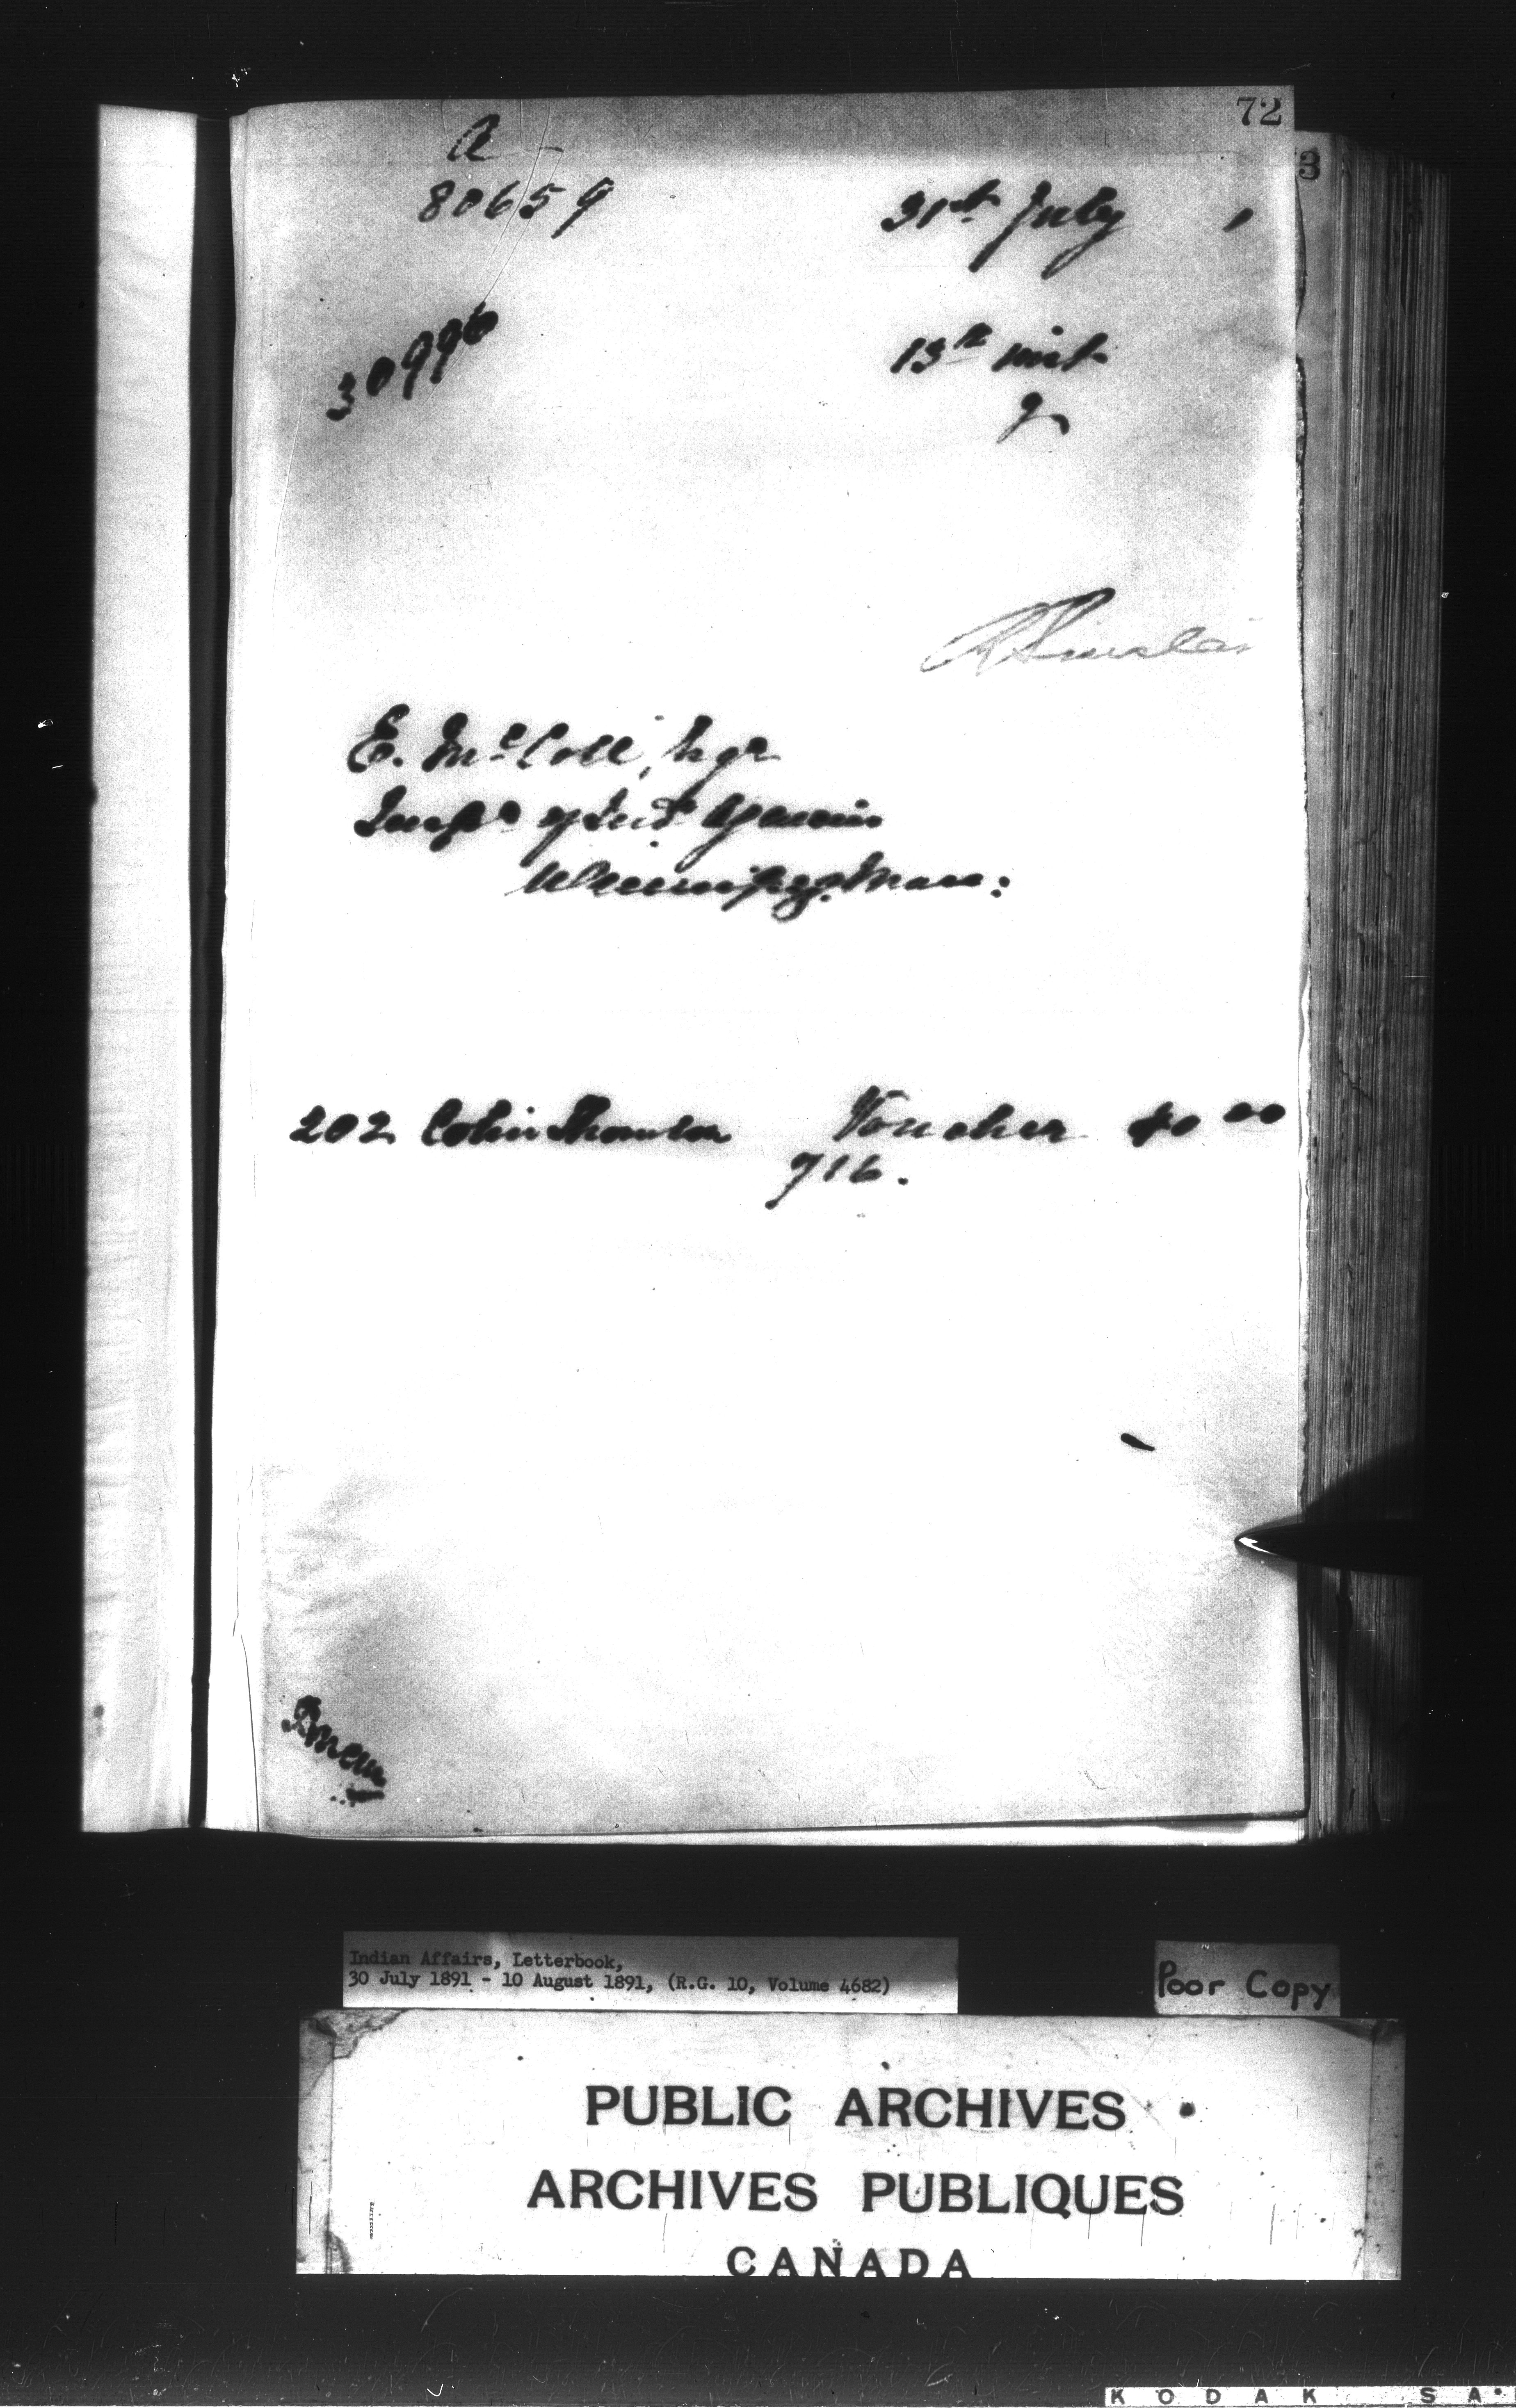 72
3
a
80659
31st July 1
30996
13th inst
E. McColl, Esqr
Inspr of Ind Agencies
Winnipeg. Man:
202 Colin Thomson Voucher 40 00
716.
Indian Affairs, Letterbook,
30 July 1891 - 10 August 1891, (R.G. 10, Volume 4682)
Poor Copy
PUBLIC ARCHIVES
ARCHIVES PUBLIQUES
CANADA
KODAK SA